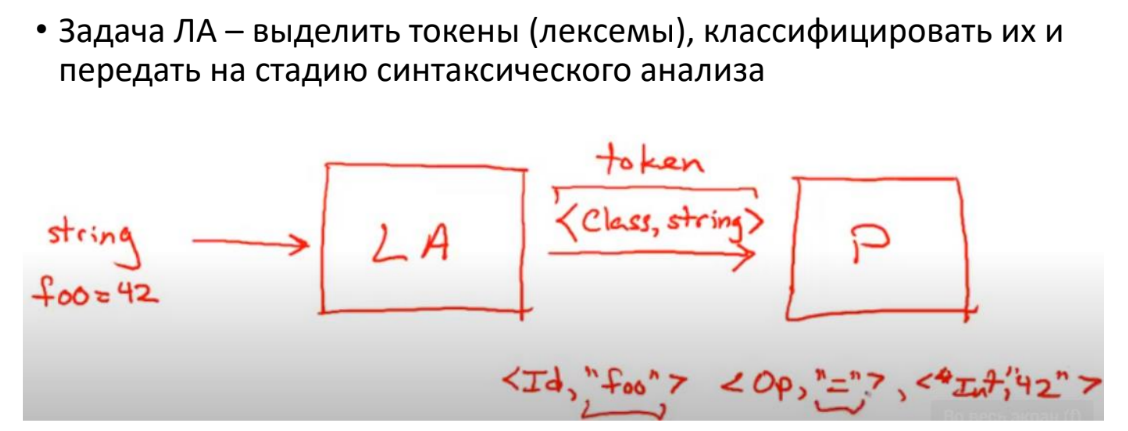 • Задача ЛА – выделить токены (лексемы), классифицировать их и
передать на стадию синтаксического анализа
token
<Class, string>
string
foo=42
LA
P
<Id, "foo"> <Op, "=">, <"Int", "42">
Во весь экран (f)